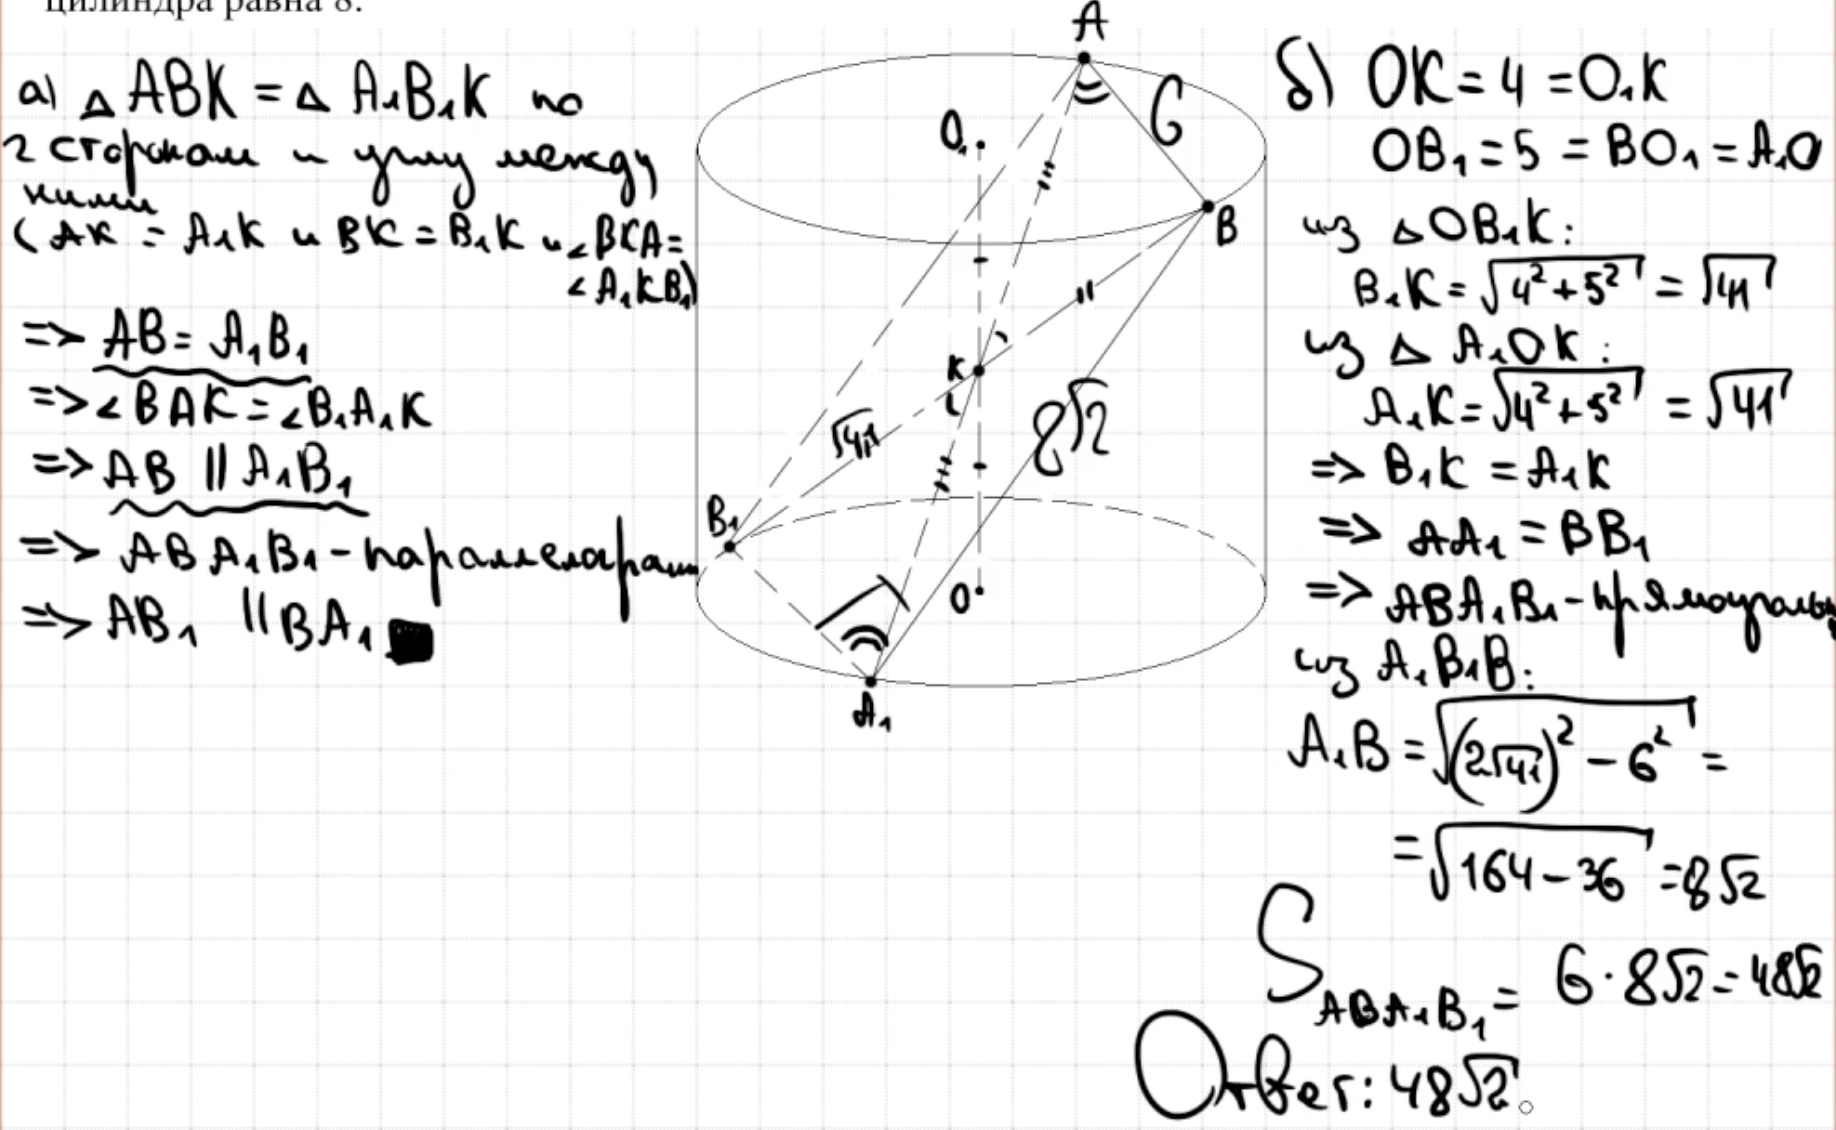 цилиндра равна 8.
а) △ ABK = △ A₁B₁K по
2 сторонам и углу между
ними
( AK = A₁K и BK = B₁K и ∠BKA =
∠A₁KB₁)
=> AB = A₁B₁
=> ∠BAK = ∠B₁A₁K
=> AB || A₁B₁
=> ABA₁B₁ - параллелограмм
=> AB₁ || BA₁
A
6
O₁
B
K
√41
8√2
B₁
O
A₁
б) OK = 4 = O₁K
OB₁ = 5 = BO₁ = A₁O
из △OB₁K:
B₁K = √4² + 5² = √41
из △ A₁OK:
A₁K = √4² + 5² = √41
=> B₁K = A₁K
=> AA₁ = BB₁
=> ABA₁B₁ - прямоугольн
из A₁B₁B:
A₁B = √(2√41)² - 6² =
= √164 - 36 = 8√2
S ABA₁B₁ = 6 · 8√2 = 48√2
Ответ: 48√2.